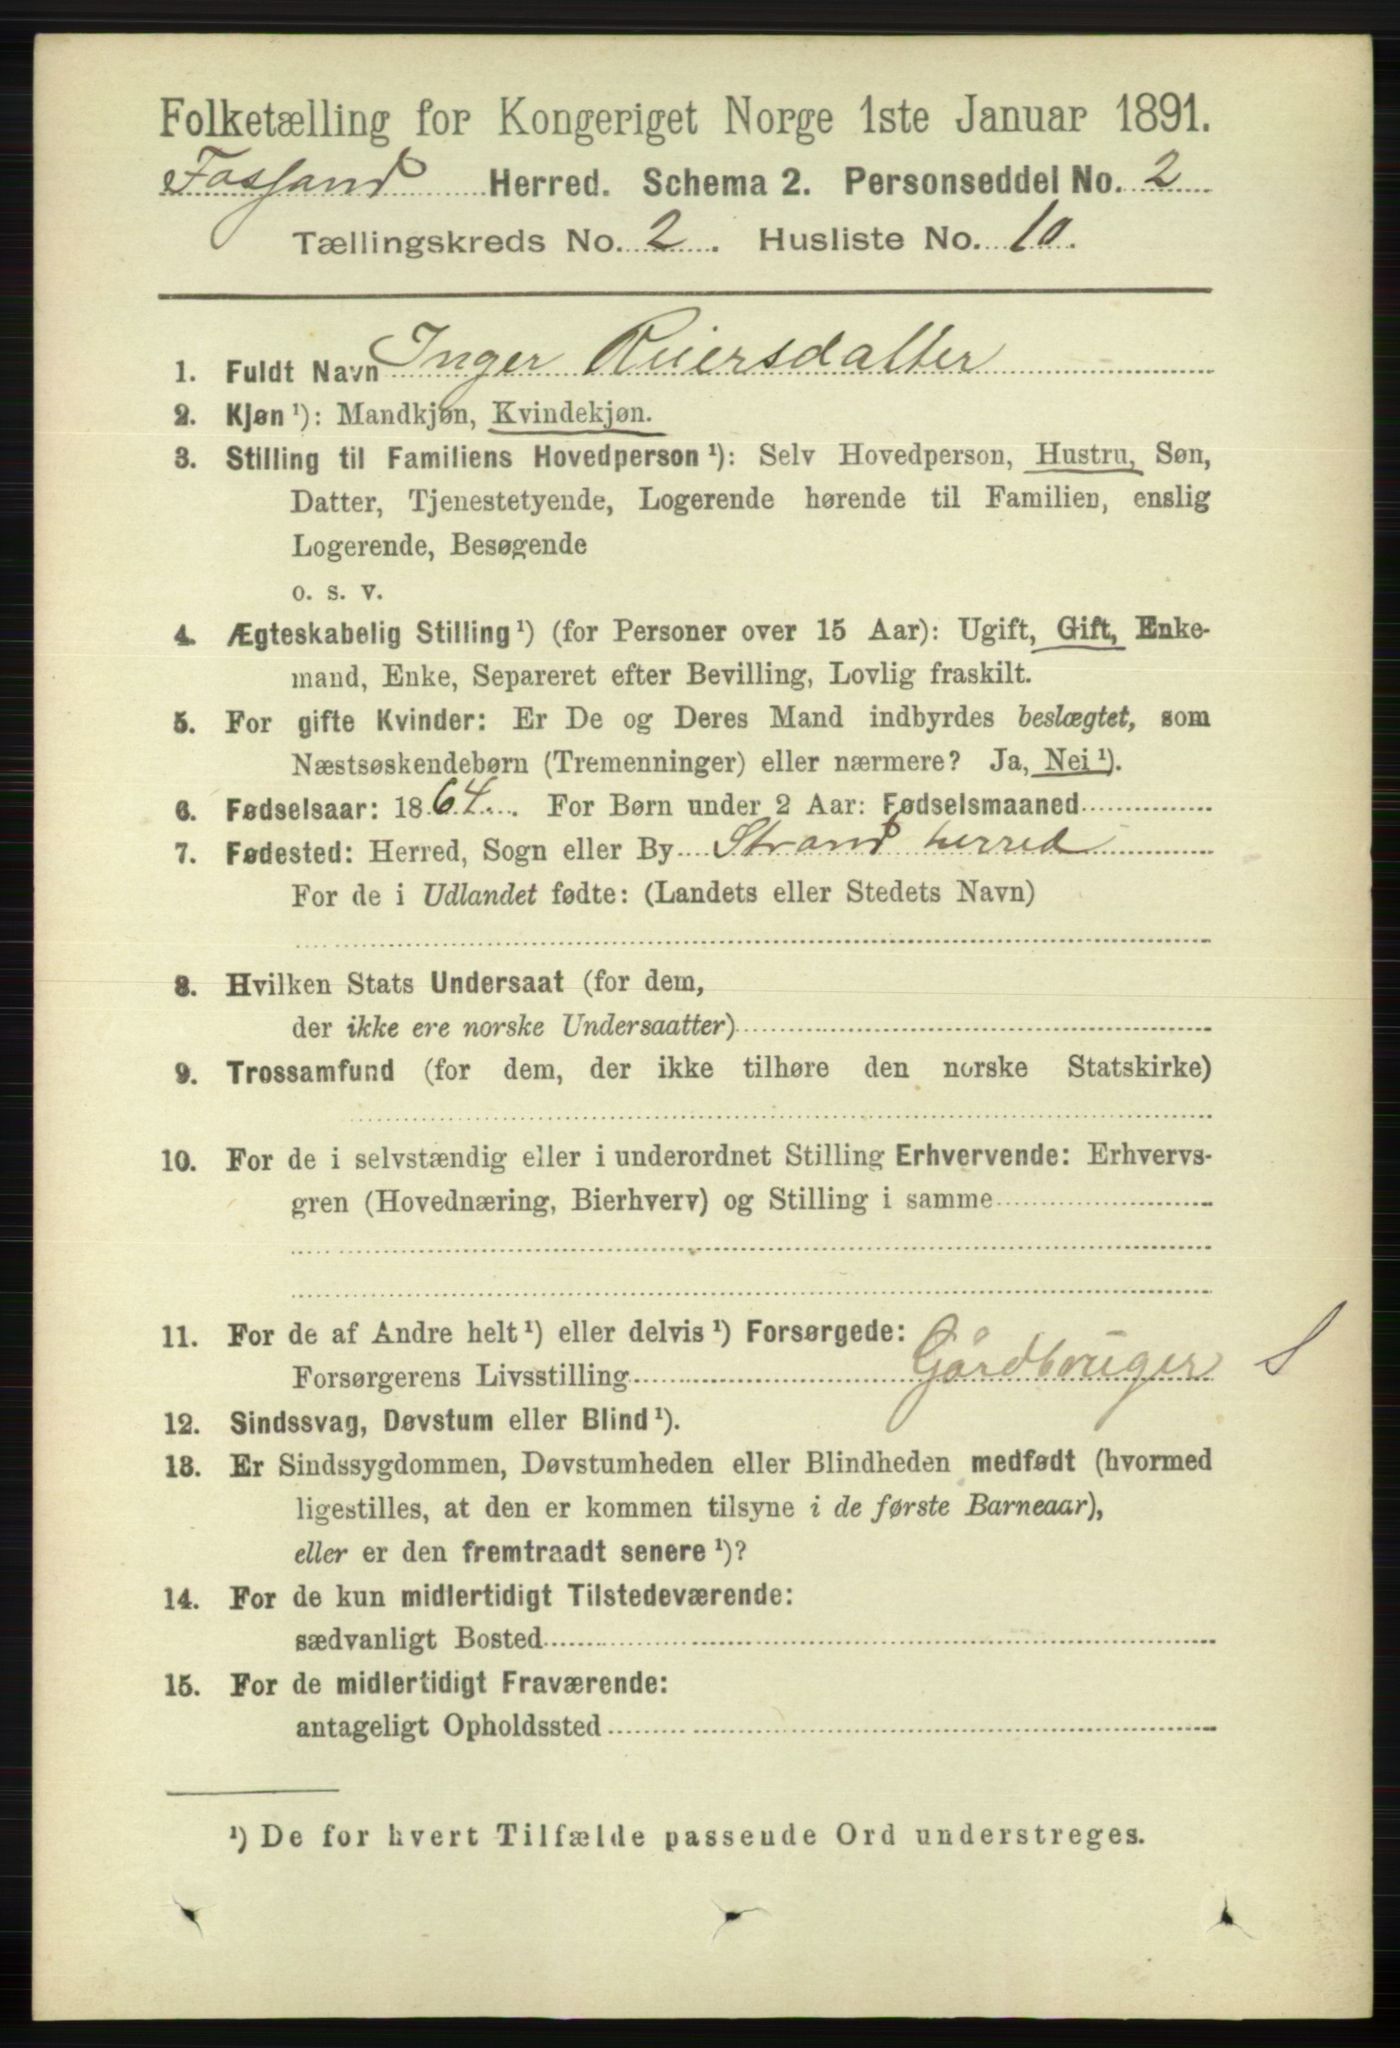 Folketælling for Kongeriget Norge 1ste Januar 1891.
Fossand Herred. Schema 2. Personseddel No. 2
Tællingskreds No. 2. Husliste No. 10.
1. Fuldt Navn Inger Reiersdatter
2. Kjøn ¹): Mandkjøn, Kvindekjøn.
3. Stilling til Familiens Hovedperson ¹): Selv Hovedperson, Hustru, Søn,
Datter, Tjenestetyende, Logerende hørende til Familien, enslig
Logerende, Besøgende
o. s. v.
4. Ægteskabelig Stilling ¹) (for Personer over 15 Aar): Ugift, Gift, Enke-
mand, Enke, Separeret efter Bevilling, Lovlig fraskilt.
5. For gifte Kvinder: Er De og Deres Mand indbyrdes beslægtet, som
Næstsøskendebørn (Tremenninger) eller nærmere? Ja, Nei ¹).
6. Fødselsaar: 1864. For Børn under 2 Aar: Fødselsmaaned
7. Fødested: Herred, Sogn eller By Strand herred
For de i Udlandet fødte: (Landets eller Stedets Navn)
8. Hvilken Stats Undersaat (for dem,
der ikke ere norske Undersaatter)
9. Trossamfund (for dem, der ikke tilhøre den norske Statskirke)
10. For de i selvstændig eller i underordnet Stilling Erhvervende: Erhvervs-
gren (Hovednæring, Bierhverv) og Stilling i samme
11. For de af Andre helt ¹) eller delvis ¹) Forsørgede:
Forsørgerens Livsstilling Gårdbruger S
12. Sindssvag, Døvstum eller Blind ¹).
13. Er Sindssygdommen, Døvstumheden eller Blindheden medfødt (hvormed
ligestilles, at den er kommen tilsyne i de første Barneaar),
eller er den fremtraadt senere ¹)?
14. For de kun midlertidigt Tilstedeværende:
sædvanligt Bosted
15. For de midlertidigt Fraværende:
antageligt Opholdssted
¹) De for hvert Tilfælde passende Ord understreges.